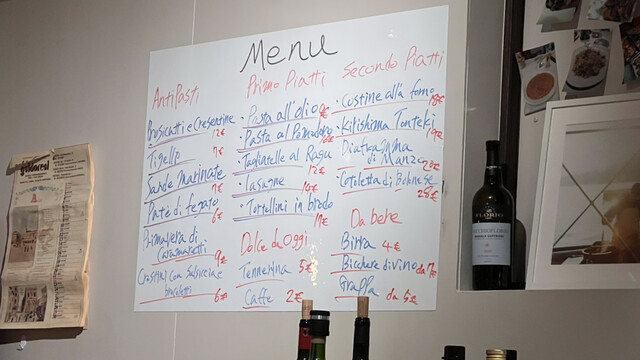 Menu
AntiPasti
Prosciutti e Crescentine
12€
Tigelle
7€
Sarde marinate
7€
Patè di fegato
6€
Primavera di
9€
Crostini con salsiccia e
6€
Primo Piatti
Pasta all'olio
Pasta al Pomodoro
Tagliatelle al Ragu
12€
Lasagne
10€
Tortellini in brodo
Dolce da Oggi
Tennerina 5€
Caffe 2€
Secondo Piatti
Costine alla forno
18€
Kirishima Tonteki
Diaframma
di Manzo
Cotoletta di Bolonese
Da bere
Birra 4€
Bicchere di vino da 7€
Graffa da 5€
FLORIO